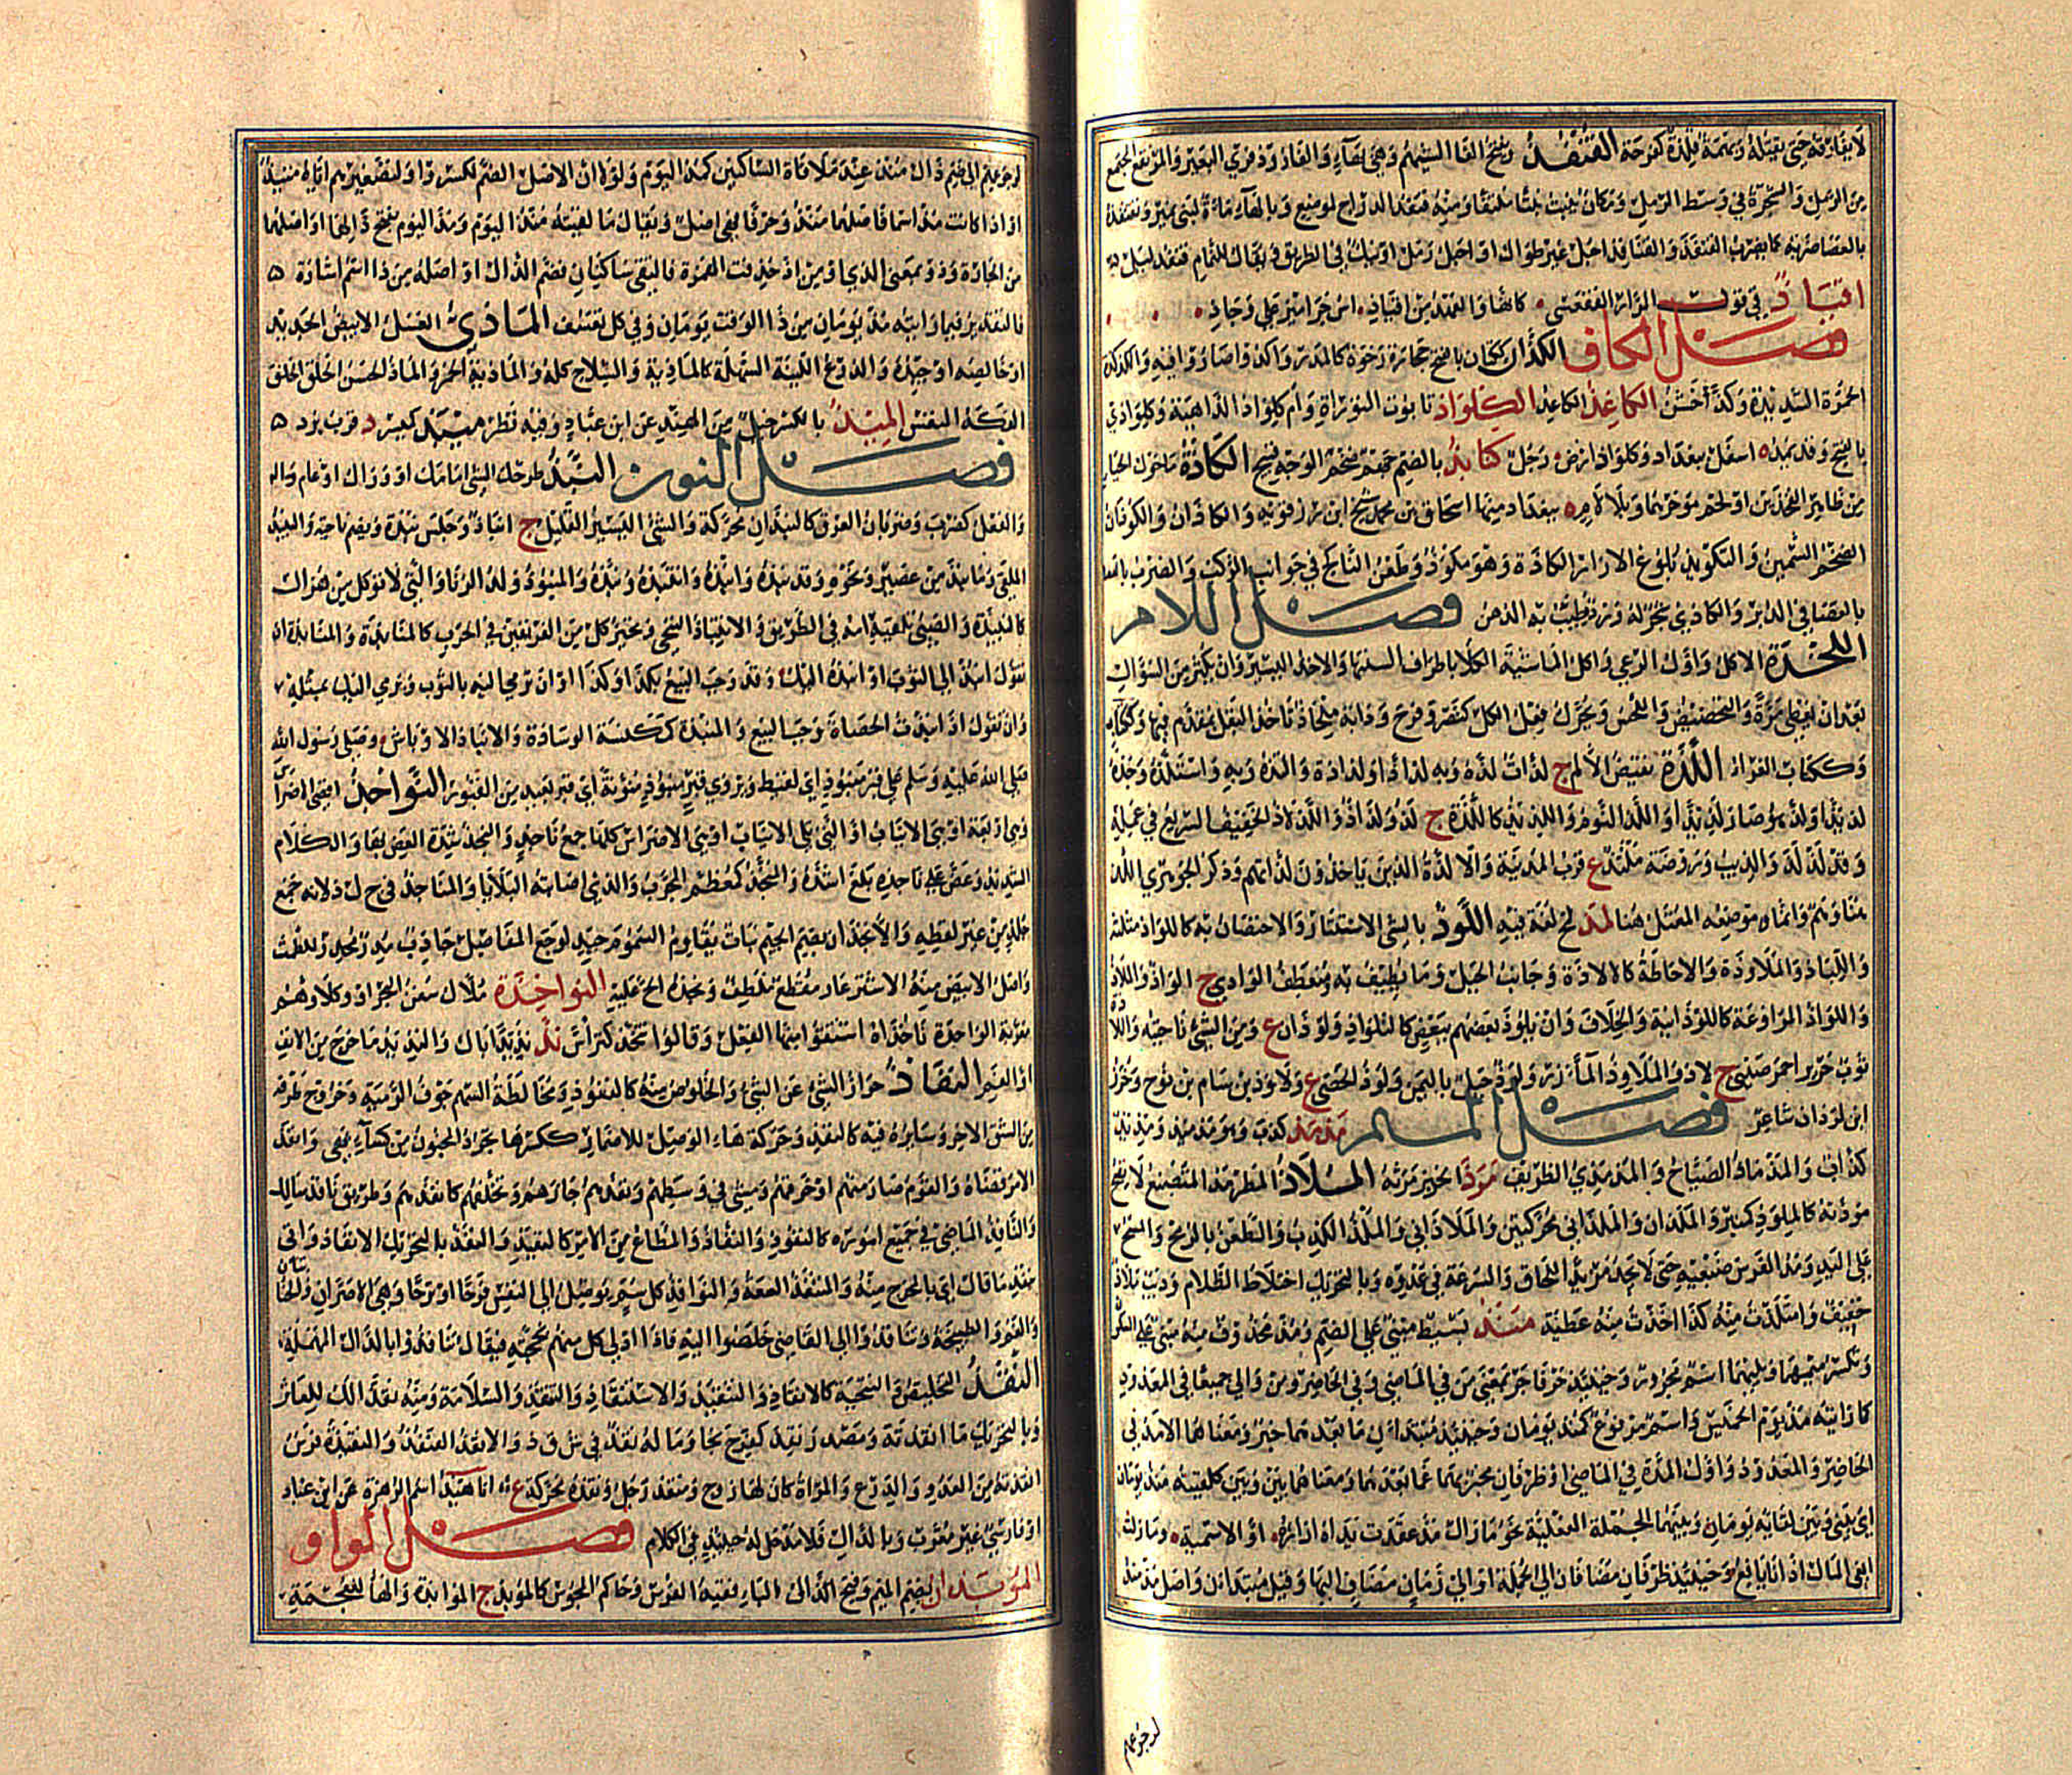 لا يفارقه حتى يقتله وتميمة قلذة كفرحة القنفذ وبفتح الفا الشيهم وهي بهاء والفار وذفرى البعير والمرتفع المجتمع
من الرمل والشجرة في وسط الرمل ومكان ينبت نبتا ملتفا ومنه قنفذ الدراج لموضع وبالهاء ماءة لبني نمير وتقنفذه
بالعصا ضربه كما يضرب القنفذ والقنافذ اجبل غير طوال او اجبل رمل او نبك في الطريق ويقال للنمام قنفذ ليل
اقتباذ في قول المرار الفقعسي كانها والعهد من اقياذ اس جراميز على وجاذ
فصل الكاف الكذان ككتان بالفتح حجارة رخوة كالمدر واكذوا صاروا فيه والكذكذة
الحمرة الشديدة وكذ اخشن الكاغذ الكاغد الكلواذ تابوت التوراة وام كلواذ الداهية وكلواذي
بالفتح وقد يمد ه اسفل بغداد وكلواذ ارض ه رجل كنابذ بالضم جهم ضخم الوجه قبيح الكاذة ما حول الحيا
من ظاهر الفخذين او لحم موخرهما وبلا لام ه ببغداد منها اسحاق بن محمد شيخ ابن رزقويه والكاذان والكوذان
الضخم السمين والتكويذ بلوغ الازار الكاذة وهو مكوذ وطعن الناكح في جوانب الركب والضرب
بالعصا في الدبر والكاذي شجر له ورد يطيب به الدهن فصل اللام
اللجذة الاكل واول الرعي واكل الماشية الكلا باطراف السنتها والاخذ اليسير وان يكثر من السؤال
بعد ان يعطى مرة والتحضيض واللحس ويحرك فعل الكل كنصر وفرح ودابة ملجاذ تاخذ البقل بمقدم فيها وككتاب
وككتاب الغراء اللذة نقيض الالم ج لذات لذه وبه لذاذا ولذاذة والتذه وبه واستلذه وجده
لذيذا ولذ هو صار لذيذا واللذ النوم واللذيذ كاللذة ج لذ ولذاذ واللذلاذ الخفيف السريع في عمله
وقد لذلذ والذيب وروضة ملتذ ع قرب المدينة والالذة الذين ياخذون لذاتهم وذكر الجوهري اللذ
هنا وهم وانما موضعه المعتل هنا لمذ لمج لغة فيه اللوذ بالشي الاستتار والاحتصان به كاللواذ مثلثة
واللياذ والملاوذة والاحاطة كالالاذة وجانب الجبل وما يطيف به ومنعطف الوادي ج الواذ واللاذ
واللواذ المراوغة كاللوذانية والخلاف وان يلوذ بعضهم ببعض كالتلواذ ولوذان ع ومن الشي ناحيته واللاذة
ثوب حرير احمر صيني ج لاذ والملاوذ المآزر ولوذ جبل باليمن ولوذ الحصى ع ولاوذ بن سام بن نوح وخرز
ابن لوذان شاعر فصل الميم مذمذ كذب وهو مذمذ ومذيذ
كذاب والمذماذ الصياح والمذمذي الظريف مرذ الخبز مرثه الملاذ المطرمذ المتصنع لا يصح
مودته كالملوذ كمنبر والملذان والملذاني محركتين والملاذاني والملذ الكذب والطعن بالرمح والمسح
على اليد ومد الفرس ضبعيه حتى لا يجد مزيدا للحاق والسرعة في عدوه وبالتحريك اختلاط الظلام وذيب ملاذ
خفيف وامتلذت منه كذا اخذت منه عطية منذ بسيط مبني على الضم ومذ محذوف منه مبني على السكون
وتكسر ميمهما ويليهما اسم مجرور وحينئذ حرفا جر بمعنى من في الماضي وفي في الحاضر ومن والى جميعا في المعدود
كما رايته منذ يوم الخميس واسم مرفوع كمنذ يومان وحينئذ مبتدا ان ما بعدهما خبر ومعناهما الامد في
الحاضر والمعدود واول المدة في الماضي او ظرفان مخبر بهما عما بعدهما ومعناهما بين وبين كلقيته منذ يومان
اي بيني وبين لقائه يومان ويليهما الجملة الفعلية نحو ما زال مذ عقدت يداه ازاره او الاسمية وما زلت
ابغي المال اذ انا يافع وحينئذ ظرفان مضافان الى الجملة او الى زمان مضاف اليها وقيل مبتدآن واصل مذ منذ
لرجوعهم
لرجوعهم الى ضم ذال منذ عند ملاقاة الساكنين كمذ اليوم ولولا ان الاصل الضم لكسروا ولتصغيرهم اياه منيذ
او اذا كانت مذ اسما فاصلها منذ وحرفا فهي اصل ويقال ما لقيته منذ اليوم ومذ اليوم بفتح ذالهما او اصلهما
من الجارة وذو بمعنى الذي او من اذ حذفت الهمزة فالتقى ساكنان فضم الذال او اصله من ذا اسم اشارة ۵
فالتقدير فيما رايته مذ يومان من ذا الوقت يومان وفي كل تعسف الماذي العسل الابيض الحديد
او خالصه او جيده والدروع اللينة السهلة كالماذية والسلاح كله والماذية الخمر والماذ الحسن الخلق
الفكه النفس الميذ بالكسر جيل من الهند عن ابن عباد وفيه نظر هميبذ كميسر د قرب يزد ۵
فصل النون النبذ طرحك الشي امامك او وراك او عام
والفعل كضرب وضربان العرق كالنبذان محركة والشي اليسير القليل ج انباذ وجلس نبذة ويضم ناحية والنبيذ
الملقى وما نبذ من عصير ونحوه وقد نبذه وانبذه وانتبذه ونبذه والمنبوذ ولد الزنا والتي لا توكل من هزال
كالنبيذة والصبي تلقيه امه في الطريق والانتباذ التنحي وتحيز كل من الفريقين في الحرب كالمنابذة والمنابذة ان
تقول انبذ الي الثوب او انبذه اليك وقد وجب البيع بكذا وكذا او ان ترمي اليه بالثوب ويرمي اليك بمثله
وان تقول اذا نبذت الحصاة وجب البيع والمنبذة كمكنسة الوسادة والانباذ الاوباش وصلى رسول الله
صلى الله عليه وسلم على قبر منبوذ اي لقيط ويروى قبر منبوذ منونة اي قبر بعيد من القبور النواجذ اقصى الاضراس
وهي اربعة او هي الانياب او التي تلي الانياب او هي الاضراس كلها جمع ناجذ والنجذ شدة العض بها والكلام
الشديد وعض على ناجذه بلغ اشده والمنجذ كمعظم المجرب والذي اصابته البلايا والمناجذ في ج ل ذ لانه جمع
جلذ من غير لفظه والانجذان بضم الجيم نبات يقاوم السموم جيد لوجع المفاصل جاذب مدر محدر للطمث
واصل الابيض منه الاشترغار مقطع ملطف ونجذه الح عليه النواخذة ملاك سفن البحر او وكلاوهم
معربة الواحدة ناخذاة اشتقوا منها الفعل وقالوا تنخذ كتراس نذ نذيذا بال والنذيذ ما خرج من الانف
او الفم النفاذ جواز الشي عن الشي والخلوص منه كالنفوذ ومخالطة السهم جوف الرمية وخروج طرفه
من الشق الاخر وسايره فيه كالنفذ وحركة هاء الوصل للاضمار ككسرها تجرد المجنون من كساءه فهي وانفذ
الامر قضاه والقوم صار منهم او خرقهم ومشى في وسطهم ونفذهم جازهم وتخلفهم كانفذهم وطريق نافذ سالك
والنافذ الماضي في جميع اموره كالنفوذ والنفاذ والمطاع من الامر كالنفيذ والنفذ بالتحريك الانفاذ واتى
بنفذ ما قال اي بالمخرج منه والمنتفذ السعة والنوافذ كل سم يوصل الى النفس فرحا او ترحا وهي الاصران والخنابتان
والفم والطبيجة وتنافذوا الى القاضي خلصوا اليه فاذا ادلى كل منهم بحجته فيقال تنافدوا بالدال المهملة
النقذ التخليص والتنحية كالانقاذ والتنقيذ والاستنقاذ والتنقذ والسلامة ومنه نقذا لك للعاثر
وبالتحريك ما انقذته ومصدر نقذ كفرح نجا وما له نقذ في ش ق ذ والانقذ القنفذ والنقيذة فرس
انقذته من العدو والدرع والمراة كان لها زوج ومنقذ رجل ونقذة محركة ع اناهيذ اسم الزهرة عن ابن عباد
او فارسي غير معرب وبالذال فلا مدخل له حينئذ في الكلام فصل الواو
الموبذان بضم الميم وفتح الباء فقيه الفرس وحاكم المجوس كالموبذ ج الموابذة والهاء للعجمة